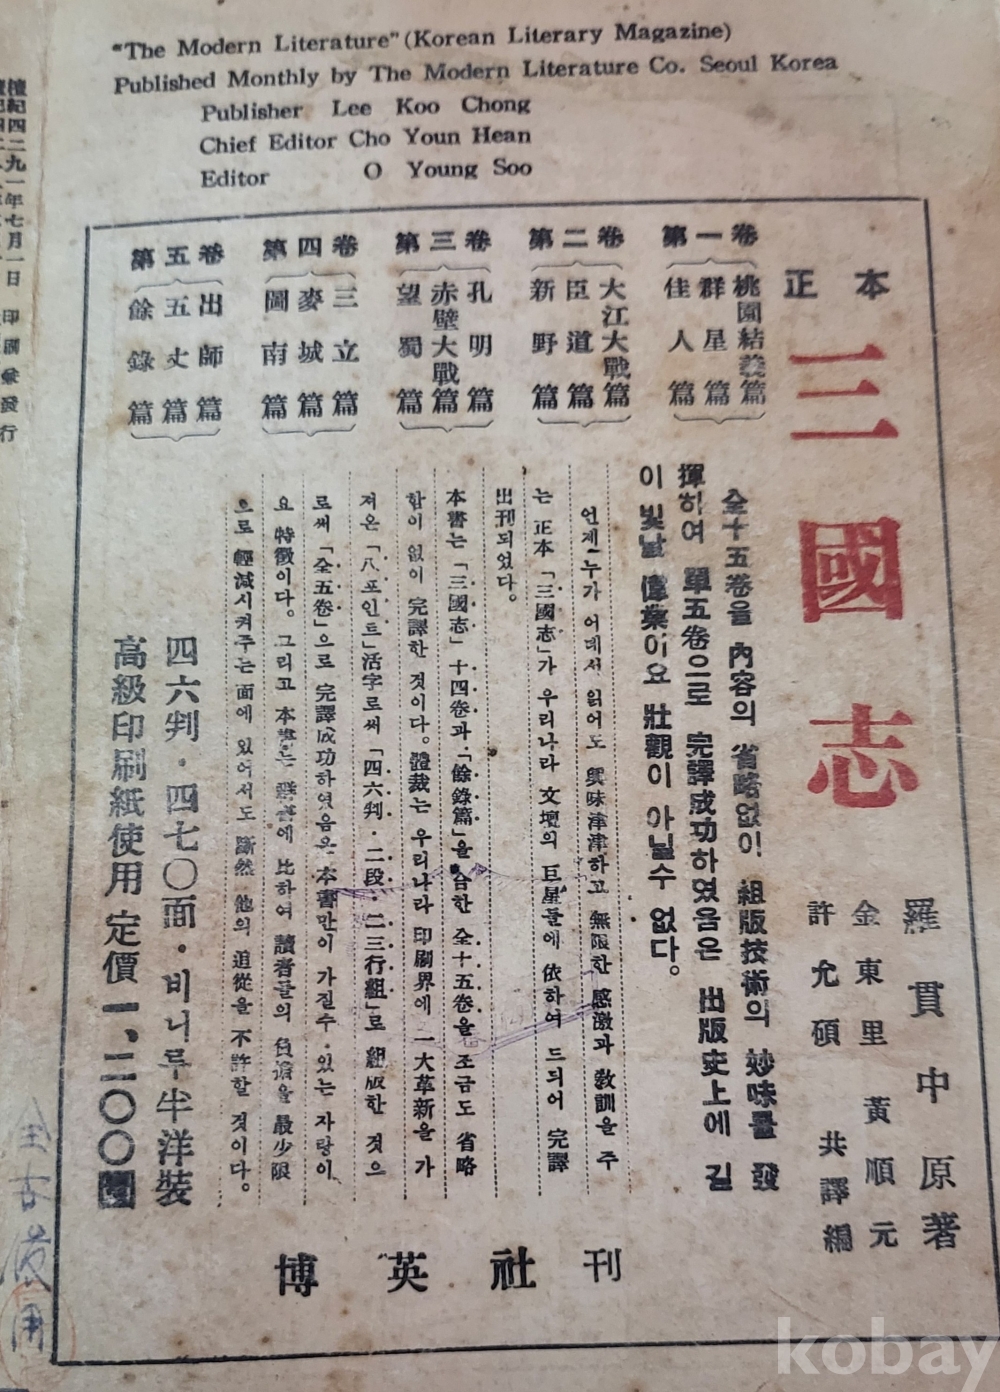 "The Modern Literature" (Korean Literary Magazine)
Published Monthly by The Modern Literature Co. Seoul Korea
Publisher Lee Koo Chong
Chief Editor Cho Youn Hean
Editor O Young Soo
正本
三國志
羅貫中 原著
金東里 黃順元
許允碩 共譯編
第一卷
桃園結義篇
群星篇
佳人篇
第二卷
大江大戰篇
臣道篇
新野篇
第三卷
孔明篇
赤壁大戰篇
望蜀篇
第四卷
三立篇
麥城篇
圖南篇
第五卷
出師篇
五丈篇
餘錄篇
全十五卷을 內容의 省略없이 組版技術의 妙味를 發
揮하여 單五卷으로 完譯成功하였음은 出版史上에 길
이 빛날 偉業이요 壯觀이 아닐수 없다。
언제 누가 어데서 읽어도 興味津津하고 無限한 感激과 敎訓을 주
는 正本「三國志」가 우리나라 文壇의 巨星들에 依하여 드되어 完譯
出刊되었다。
本書는「三國志」十四卷과「餘錄篇」을 合한 全十五卷을 조금도 省略
함이 없이 完譯한 것이다。體裁는 우리나라 印刷界에 一大革新을 가
져온「八포인트」活字로써「四六判·二段·二三行組」로 組版한 것으
로써「全五卷」으로 完譯成功하였음은 本書만이 가질수 있는 자랑이
요 特徵이다。그리고 本書는 群書에 比하여 讀者들의 負擔을 最少限
으로 輕減시켜주는 面에 있어서도 斷然 他의 追從을 不許할 것이다。
四六判·四七〇面·비니루半洋裝
高級印刷紙使用 定價 一、二〇〇圜
博英社 刊
檀紀四二九一年七月一日 印刷兼發行
kobay